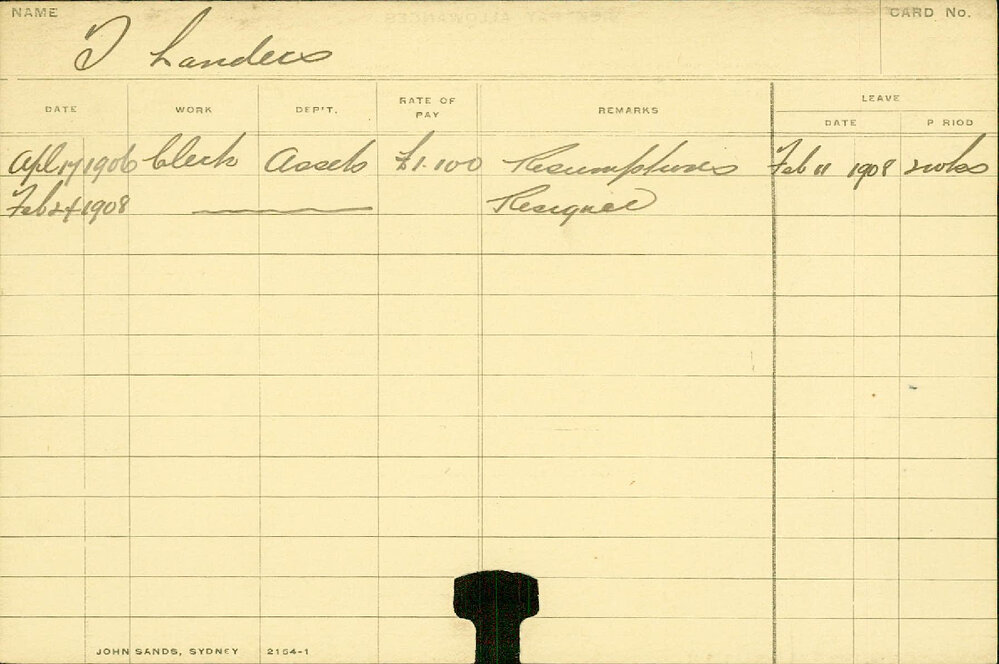 NAME
CARD No.
T Landers
DATE WORK DEP'T. RATE OF PAY REMARKS LEAVE
DATE P RIOD
Apl 17 1906 Clerk Assets £1.100 Resumptions Feb 11 1908 2 wks
Feb 24 1908 Resigned
JOHN SANDS, SYDNEY 2154-1